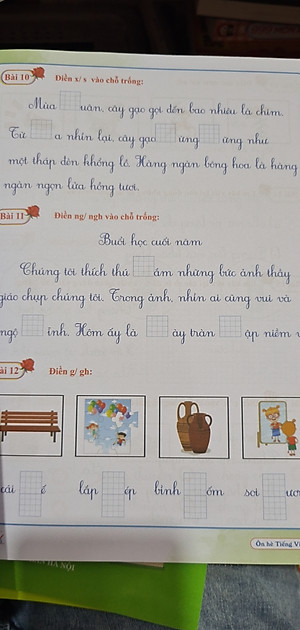 Bài 10 Điền x/ s vào chỗ trống:
Mùa uân, cây gạo gọi đến bao nhiêu là chim.
Từ a nhìn lại, cây gạo ừng ững như
một tháp đèn khổng lồ. Hàng ngàn bông hoa là hàng
ngàn ngọn lửa hồng tươi.
Bài 11 Điền ng/ ngh vào chỗ trống:
Buổi học cuối năm
Chúng tôi thích thú ắm những bức ảnh thầy
giáo chụp chúng tôi. Trong ảnh, nhìn ai cũng vui và
ngộ ĩnh. Hôm ấy là ày tràn ập niềm
ài 12 Điền g/ gh:
cái ế lắp ép bình ốm soi ươ
Ôn hè Tiếng Vi
HÀ NỘI